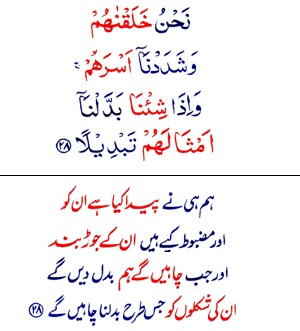 نَحْنُ خَلَقْنٰهُمْ
وَشَدَدْنَاۤ اَسْرَهُمْ ۚ
وَاِذَا شِئْنَا بَدَّلْنَاۤ
اَمْثَالَهُمْ تَبْدِيْلًا ﴿۲۸﴾
ہم ہی نے پیدا کیا ہے ان کو
اور مضبوط کیے ہیں ان کے جوڑ بند
اور جب چاہیں گے ہم بدل دیں گے
ان کی شکلوں کو جس طرح بدلنا چاہیں گے ﴿۲۸﴾